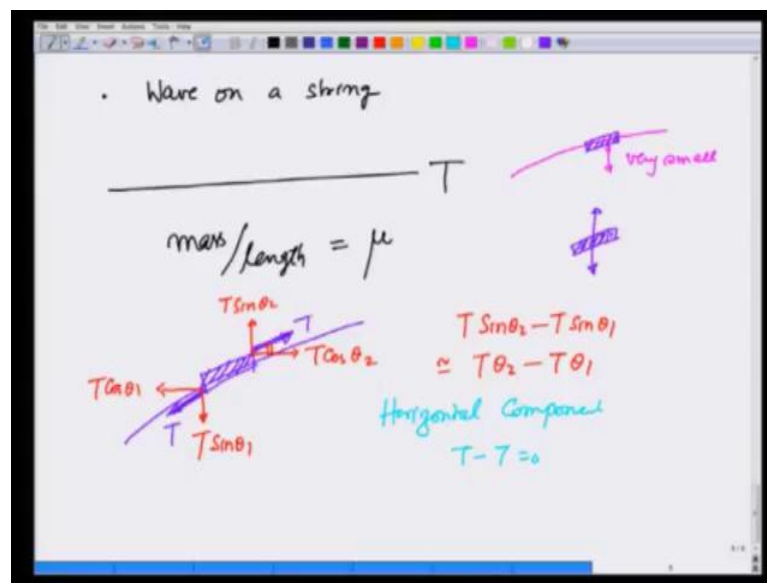 File Edit View Insert Actions Tools Help
. Wave on a string
T
very small
mass/length = μ
T Sinθ2
T
T Cosθ2
T Cosθ1
T
T Sinθ1
T Sinθ2 - T Sinθ1
≃ Tθ2 - Tθ1
Horizontal Componen
T - T = 0